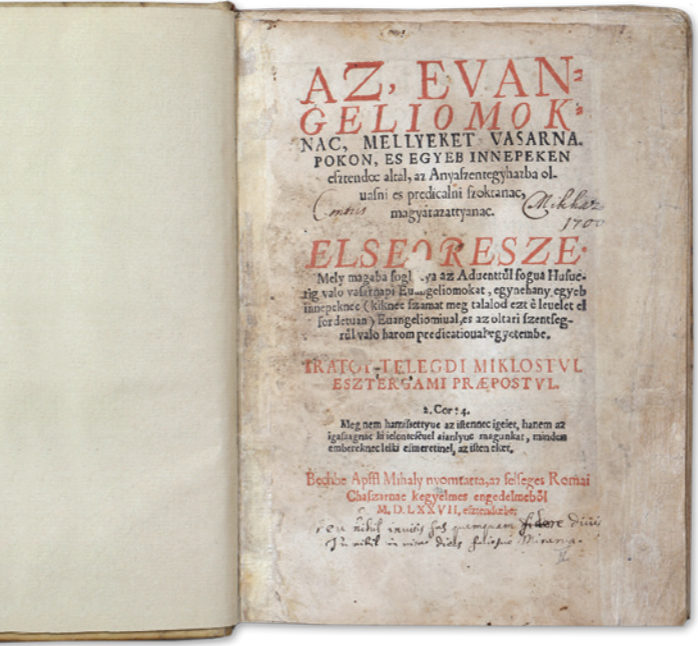 AZ, EVAN-
GELIOMOK-
NAC, MELLYEKET VASARNA.
POKON, ES EGYEB INNEPEKEN
esztendoe altal, az Anyaszentegyhazba ol-
uasni es predicalni szoktanac,
magyarazattyanac.
Mikház
1700
ELSEO RESZE.
Mely magaba fogl ya az Aduenttűl fogua Husue-
tig valo vasarnapi Euangeliomokat, egynehany egyeb
innepeknec (kiknec szamat meg talalod ezt è leuelet el
fordetuan) Euangeliomiual, es az oltari szentseg-
rűl valo harom predicatioual egyetembe.
IRATOT TELEGDI MIKLOSTVL
ESZTERGAMI PRÆPOSTVL.
2. Cor: 4.
Meg nem hamissettyuc az istennec igeiet, hanem az
igassagnac ki ielenteseuel aianlyuc magunkat, minden
embereknec lelki esmeretinel, az isten elet.
Bechbe Apffl Mihaly nyomtatta, az felseges Romai
Chaszarnac kegyelmes engedelmeből
M. D. LXXVII, esztendőbe.
nihil inuitis fas quemquam fidere diuis
Tu nihil inuita dices faciesue Minerva.